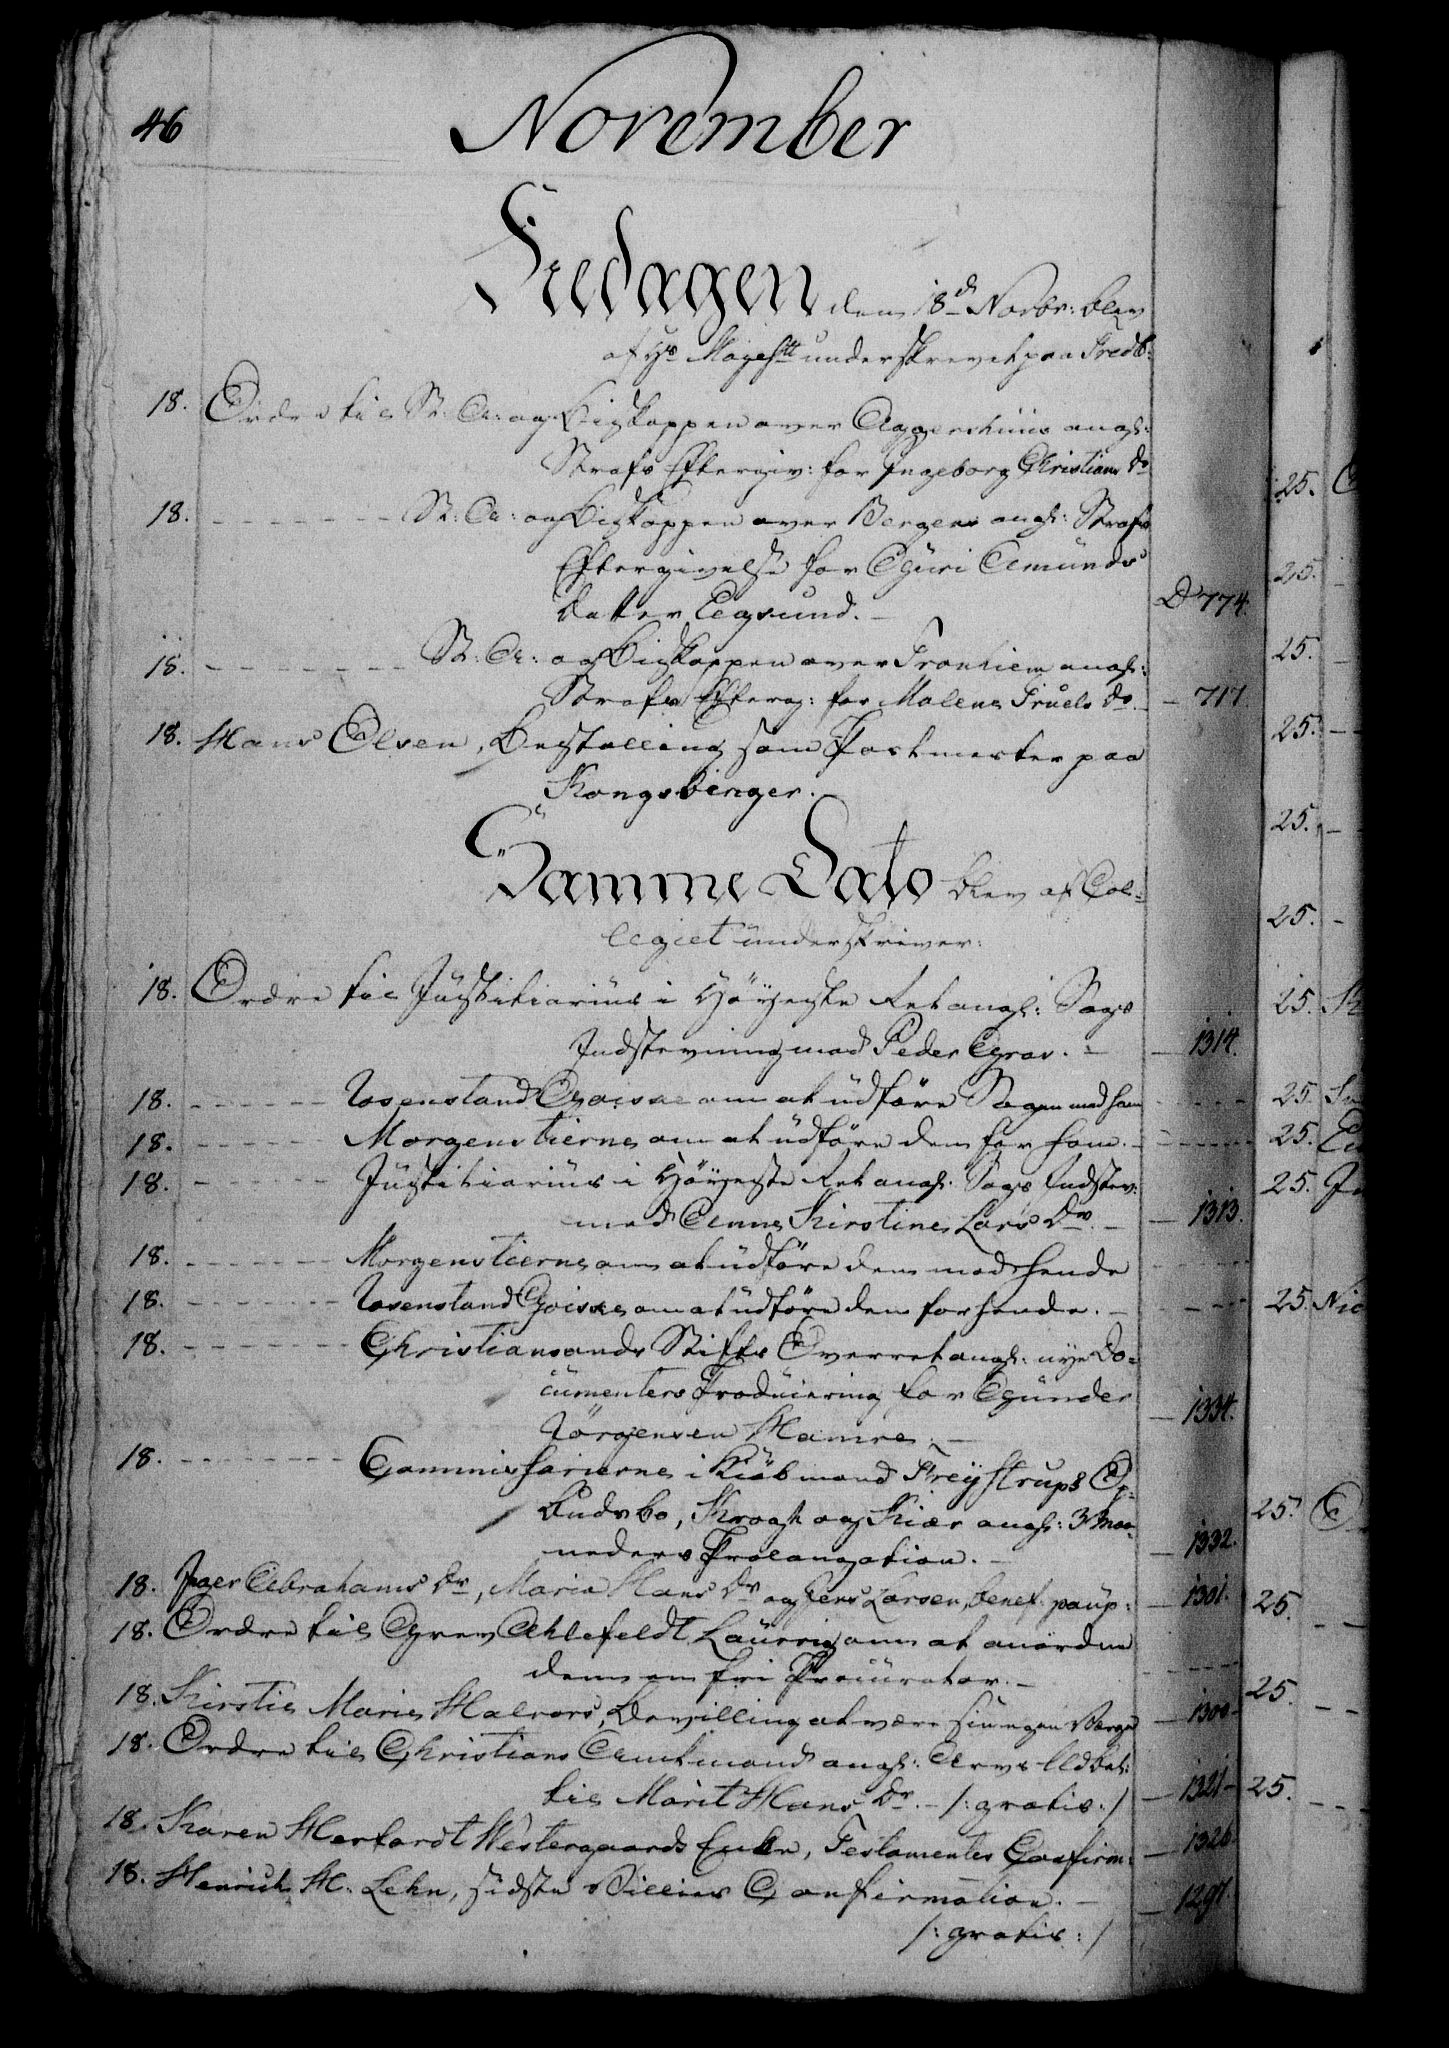 46
November
Fredagen den 18d Novbr: blev
af Hs Majestt underskrevet paa Fredb:
18. Ordre til St: A: og Biskoppen over Aggershuus angl:
Strafs Eftergiv: for Ingeborg Christians Dr
18. - - - - - - - St: A: og Biskoppen over Bergen angl: Strafs
Eftergivelse for Guri Amunds
datter Eegsund. - D 774.
18. - - - - - - - St: A: og Biskoppen over Tronhiem angl:
Strafs Efterg: for Malene Truels Dr. - - 717.
18. Hans Olsen, Bestalling som Postmester paa
Kongsvinger. -
Samme Dato blev af Col-
legiet underskriver:
18. Ordre til Justitiarius i Høyeste Ret angl: Sags
Indstevning mod Peder Grav. - - 1314.
18. - - - - - - Rosenstand Goiske om at udføre Sagen mod ham - - - -
18. - - - - - - Morgenstierne om at udføre dem for ham. - - - - - -
18. - - - - - - Justitiarius i Høyeste Ret angl: Sags Indstev:
mod Anne Kirstine Lars Dr. - - 1313.
18. - - - - - - Morgenstierne om at udføre dem mod hende - - - -
18. - - - - - - Rosenstand Goiske om at udføre dem for hende. - - - - -
18. - - - - - - Christiansands Stifts Overret angl: nye Do-
cumenters Producering for Gunder
Jörgensen Hamre. - - 1334.
18. - - - - - - Commissarierne i Kiöbmand Freystrups Op-
budsbo, Krogh og Kiær angl: 3 Maa-
neders Prolongation. - - 1332.
18. Inger Abrahams Dr, Maria Hans Dr og Jens Larsen, benef: paup: - 1301.
18. Ordre til Grev Ahlefeldt Laurvig om at anordne
dem en fri Procurator. - - - - -
18. Kirstie Marie Halvors, Bevilling at være sin egen Værge - 1300-
18. Ordre til Christians Amtmand angl: Arvs Udbet:
til Marit Hans Dr. - /: gratis :/ - 1321-
18. Karen Herfordt Westergaards Enke, Testamentes Confirm: - 1326.
18. Henrich H. Lehn, sidste Villies Confirmation. - - 1297.
/: gratis :/
25.
25.
25.
25.
25.
25.
25.
25.
25.
25.
25. Nic
25.
25.
25.
25.